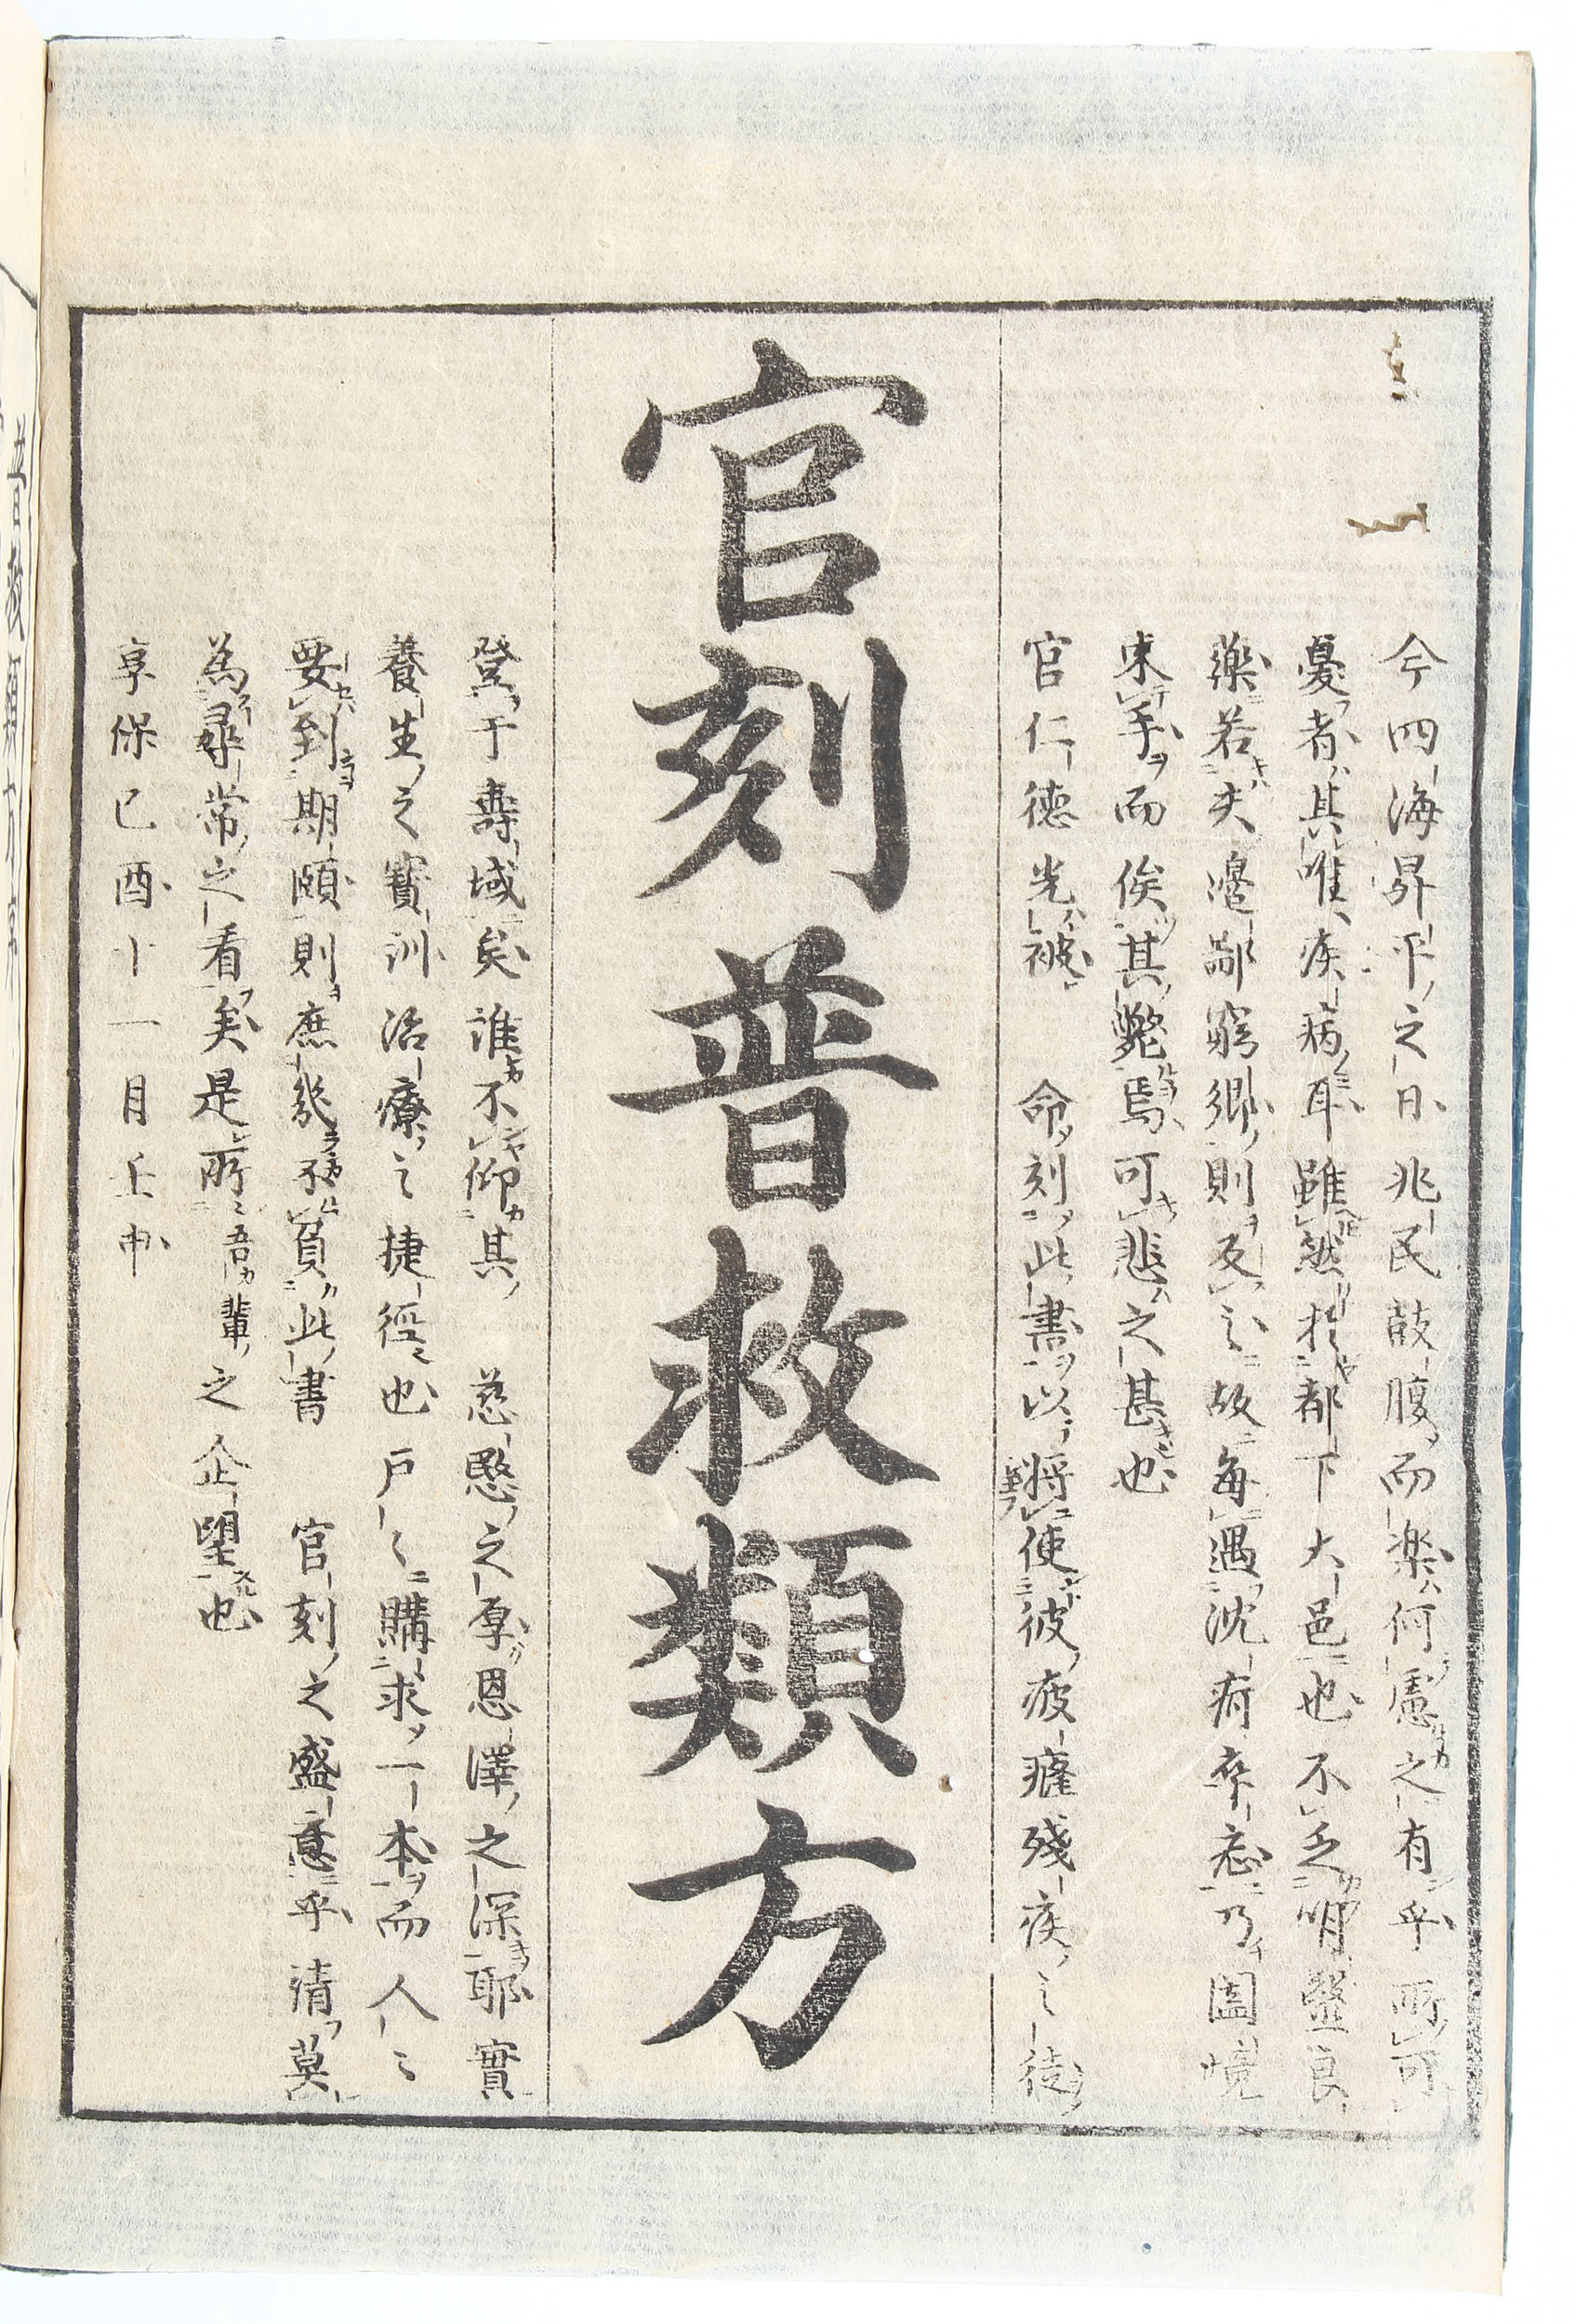 今四海昇平之日兆民鼓腹而楽何慮之有乎所可
憂者其唯疾病耳雖然於都下大邑也不乏明醫良
藥若夫邊鄙窮鄉則反之故每遇沈痾卒恙乃闔境
束手而俟其斃焉可悲之甚也
官仁德光被　命刻此書以將使彼疲癃殘疾之徒
官刻普救類方
登于壽域矣誰不仰其　慈愍之厚恩澤之深耶實
養生之寶訓治療之捷徑也戶〻購求一本而人〻
要到期頤則庶幾不負此書　官刻之盛意乎請莫
為尋常之看矣是所吾輩之企望也
享保己酉十一月壬申